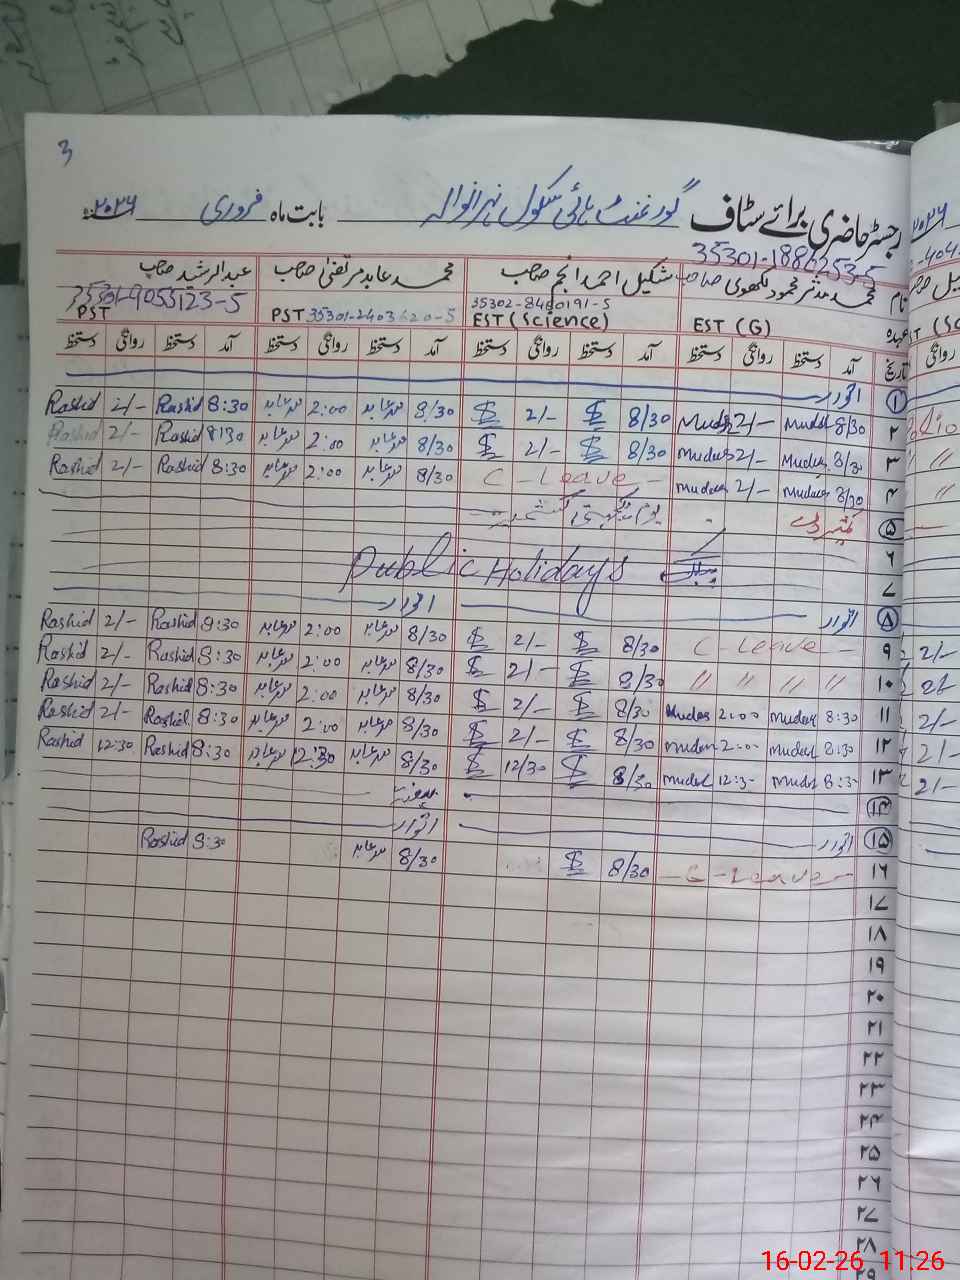 3
رجسٹر حاضری برائے سٹاف گورنمنٹ ہائی سکول نہرانوالہ بابت ماہ فروری ۲۰۲۶
35301-1886253-5
نام محمد مدثر محمود لکھوی صاحب شکیل احمد انجم صاحب محمد عابد مرتضیٰ صاحب عبدالرشید صاحب
عہدہ EST (G) 35302-8460191-5 EST (Science) PST 35301-2403620-5 35301-9055123-5 PST
تاریخ آمد دستخط روانگی دستخط آمد دستخط روانگی دستخط آمد دستخط روانگی دستخط آمد دستخط روانگی دستخط
۱ اتوار
۲ 8/30 Mudsr 2/- Mudsr 8/30 $ 2/- $ 8/30 محمد عابد 2:00 محمد عابد 8:30 Rashid 2/- Rashid
۳ 8/30 Mudsr 2/- Mudsr 8/30 $ 2/- $ 8/30 محمد عابد 2:00 محمد عابد 8:30 Rashid 2/- Rashid
۴ 8/30 Mudsr 2/- Mudsr C-Leave 8/30 محمد عابد 2:00 محمد عابد 8:30 Rashid 2/- Rashid
۵ کشمیر ڈے یوم یکجہتی کشمیر
۶ Public Holidays
۷
۸ اتوار اتوار
۹ C-Leave 8/30 $ 2/- $ 8/30 محمد عابد 2:00 محمد عابد 8:30 Rashid 2/- Rashid
۱۰ " " " " 8/30 $ 2/- $ 8/30 محمد عابد 2:00 محمد عابد 8:30 Rashid 2/- Rashid
۱۱ 8:30 Mudsr 2:00 Mudsr 8/30 $ 2/- $ 8/30 محمد عابد 2:00 محمد عابد 8:30 Rashid 2/- Rashid
۱۲ 8:30 Mudsr 2:00 Mudsr 8/30 $ 2/- $ 8/30 محمد عابد 2:00 محمد عابد 8:30 Rashid 2/- Rashid
۱۳ 8:30 Mudsr 12:30 Mudsr 8/30 $ 12/30 $ 8/30 محمد عابد 12:30 محمد عابد 8:30 Rashid 12:30 Rashid
۱۴ ہفتہ
۱۵ اتوار اتوار
۱۶ C-Leave 8/30 $ 8/30 محمد عابد 8:30 Rashid
۱۷
۱۸
۱۹
۲۰
۲۱
۲۲
۲۳
۲۴
۲۵
۲۶
۲۷
۲۸
۲۹
16-02-26 11:26